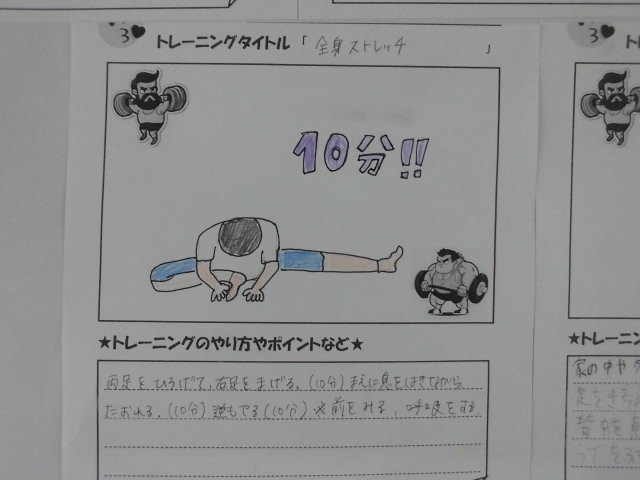 3
トレーニングタイトル「全身ストレッチ」
10分!!
★トレーニングのやり方やポイントなど★
両足をひろげて、右足をまげる。(10分)まえに息をはきながら
たおれる。(10分)逆もやる(10分)※前をみる、呼吸をする
3
★トレーニン
家の中や